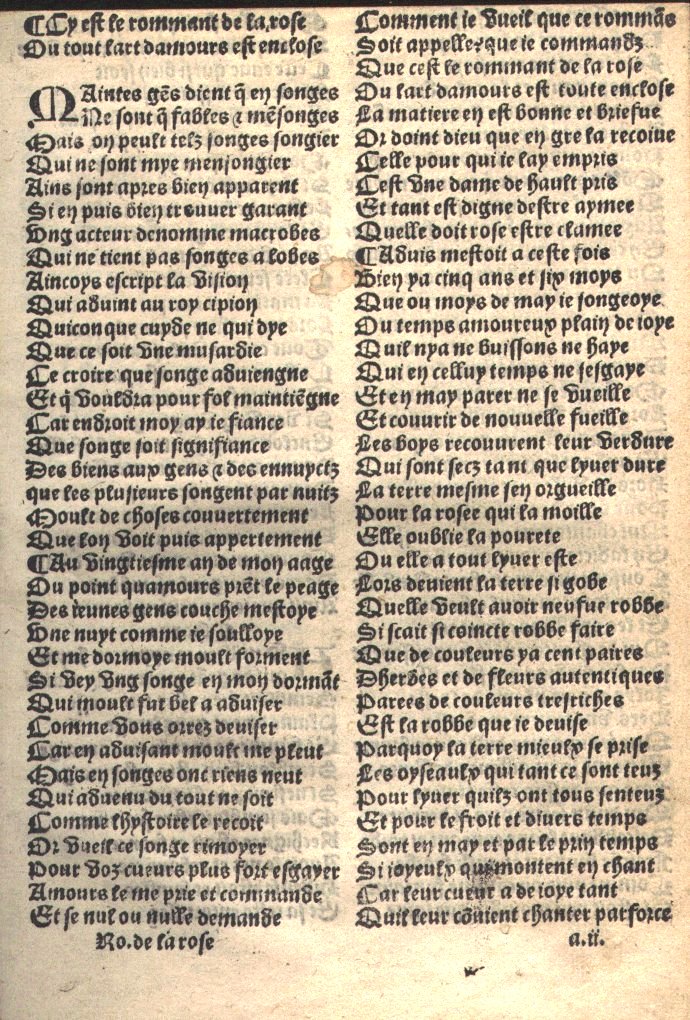 ⸿Cy est le rommant de la rose
Ou tout lart damours est enclose
MAintes gẽs dient q̃ en songes
Ne sont q̃ fables ⁊ mẽsonges
Mais on peult telz songes songier
Qui ne sont mye mensongier
Ains sont apres bien apparent
Si en puis bien trouuer garant
Vng acteur denomme macrobes
Qui ne tient pas songes a lobes
Aincoys escript la vision
Qui aduint au roy cipion
Quiconque cuyde ne qui dye
Que ce soit vne musardie
Ce croire que songe aduiengne
Et q̃ vouldra pour fol maintiẽgne
Car endroit moy ay ie fiance
Que songe soit signifiance
Des biens aux gens ⁊ des ennuyctz
que les plusieurs songent par nuitz
Moult de choses couuertement
Que lon voit puis appertement
⸿Au vingtiesme an de mon aage
Ou point quamours prẽt le peage
Des ieunes gens couche mestoye
Vne nuyt comme ie soulloye
Et me dormoye moult forment
Si vey vng songe en mon dormãt
Qui moult fut bel a aduiser
Comme vous orrez deuiser
Car en aduisant moult me pleut
Mais en songes onc riens neut
Qui aduenu du tout ne soit
Comme lhystoire le recoit
Or vueil ce songe rimoyer
Pour voz cueurs plus fort esgayer
Amours le me prie et commande
Et se nul ou nulle demande
Ro. de la rose
Comment ie vueil que ce rommãs
Soit appelle que ie commandz
Que cest le rommant de la rose
Ou lart damours est toute enclose
La matiere en est bonne et briefue
Or doint dieu que en gre la recoiue
Celle pour qui ie lay empris
Cest vne dame de hault pris
Et tant est digne destre aymee
Quelle doit rose estre clamee
⸿Aduis mestoit a ceste fois
Bien ya cinq ans et six moys
Que ou moys de may ie songeoye
Ou temps amoureux plain de ioye
Quil nya ne buissons ne haye
Qui en celluy temps ne sesgaye
Et en may parer ne se vueille
Et couurir de nouuelle fueille
Les boys recouurent leur verdure
Qui sont secz tant que lyuer dure
La terre mesme sen orgueille
Pour la rosee qui la moille
Elle oublie la pourete
Ou elle a tout lyuer este
Lors deuient la terre si gobe
Quelle veult auoir neufue robbe
Si scait si coincte robbe faire
Que de couleurs ya cent paires
Dherbes et de fleurs autentiques
Parees de couleurs tresriches
Est la robbe que ie deuise
Parquoy la terre mieulx se prise
Les oyseaulx qui tant ce sont teuz
Pour lyuer quilz ont tous senteuz
Et pour le froit et diuers temps
Sont en may et par le prin temps
Si ioyeulx quemontent en chant
Car leur cueur a de ioye tant
Quil leur cõuient chanter par force
a.ii.